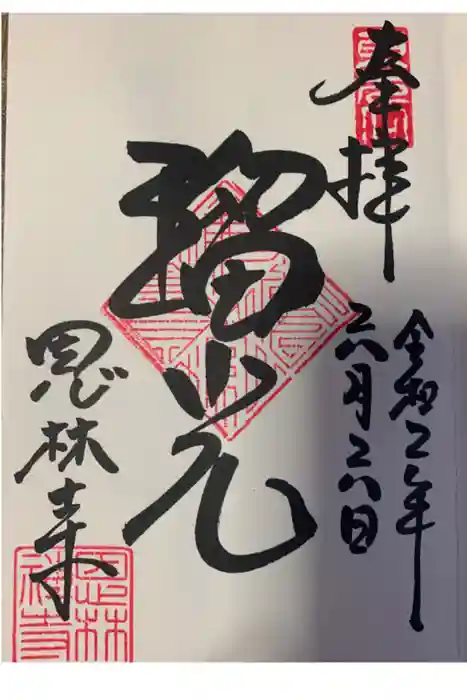 奉拝
令和二年
六月二六日
瑠光
恩林寺
恩林
禅寺